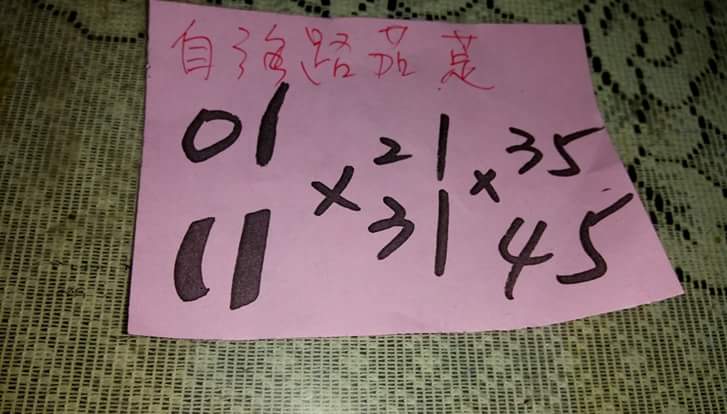 自強路茄萣
01 × 21 × 35
11 31 45